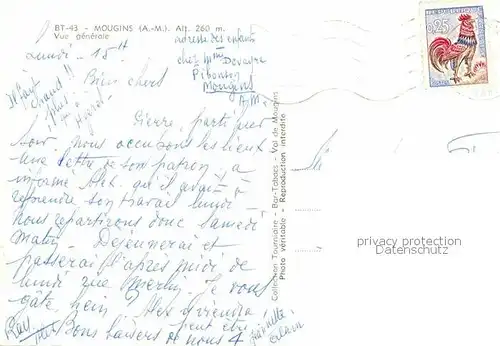 BT-43 - MOUGINS (A.-M.). Alt. 260 m.
Vue générale
Lundi - 15 H
adresse des enfants
chez Mme Devavre
Mougins
A.M.
Il fait
chaud !!
plus
qu'à
Hyères !
Bien chers
Pierre, parti hier
soir. Nous occupons les lieux
une lettre de son patron, a
informé Alex. qu'il avait à
reprendre son travail lundi -
Nous repartirons donc samedi
matin. Déjeunerai et
passerai l'après midi de
lundi rue Merlin. Je vous
gâte, hein ? Alex viendra
peut être
Bons baisers de nous 4
Alain
Collection Tournaire - Bar-Tabacs - Val de Mougins
Photo véritable - Reproduction interdite
0,25
privacy protection
Datenschutz